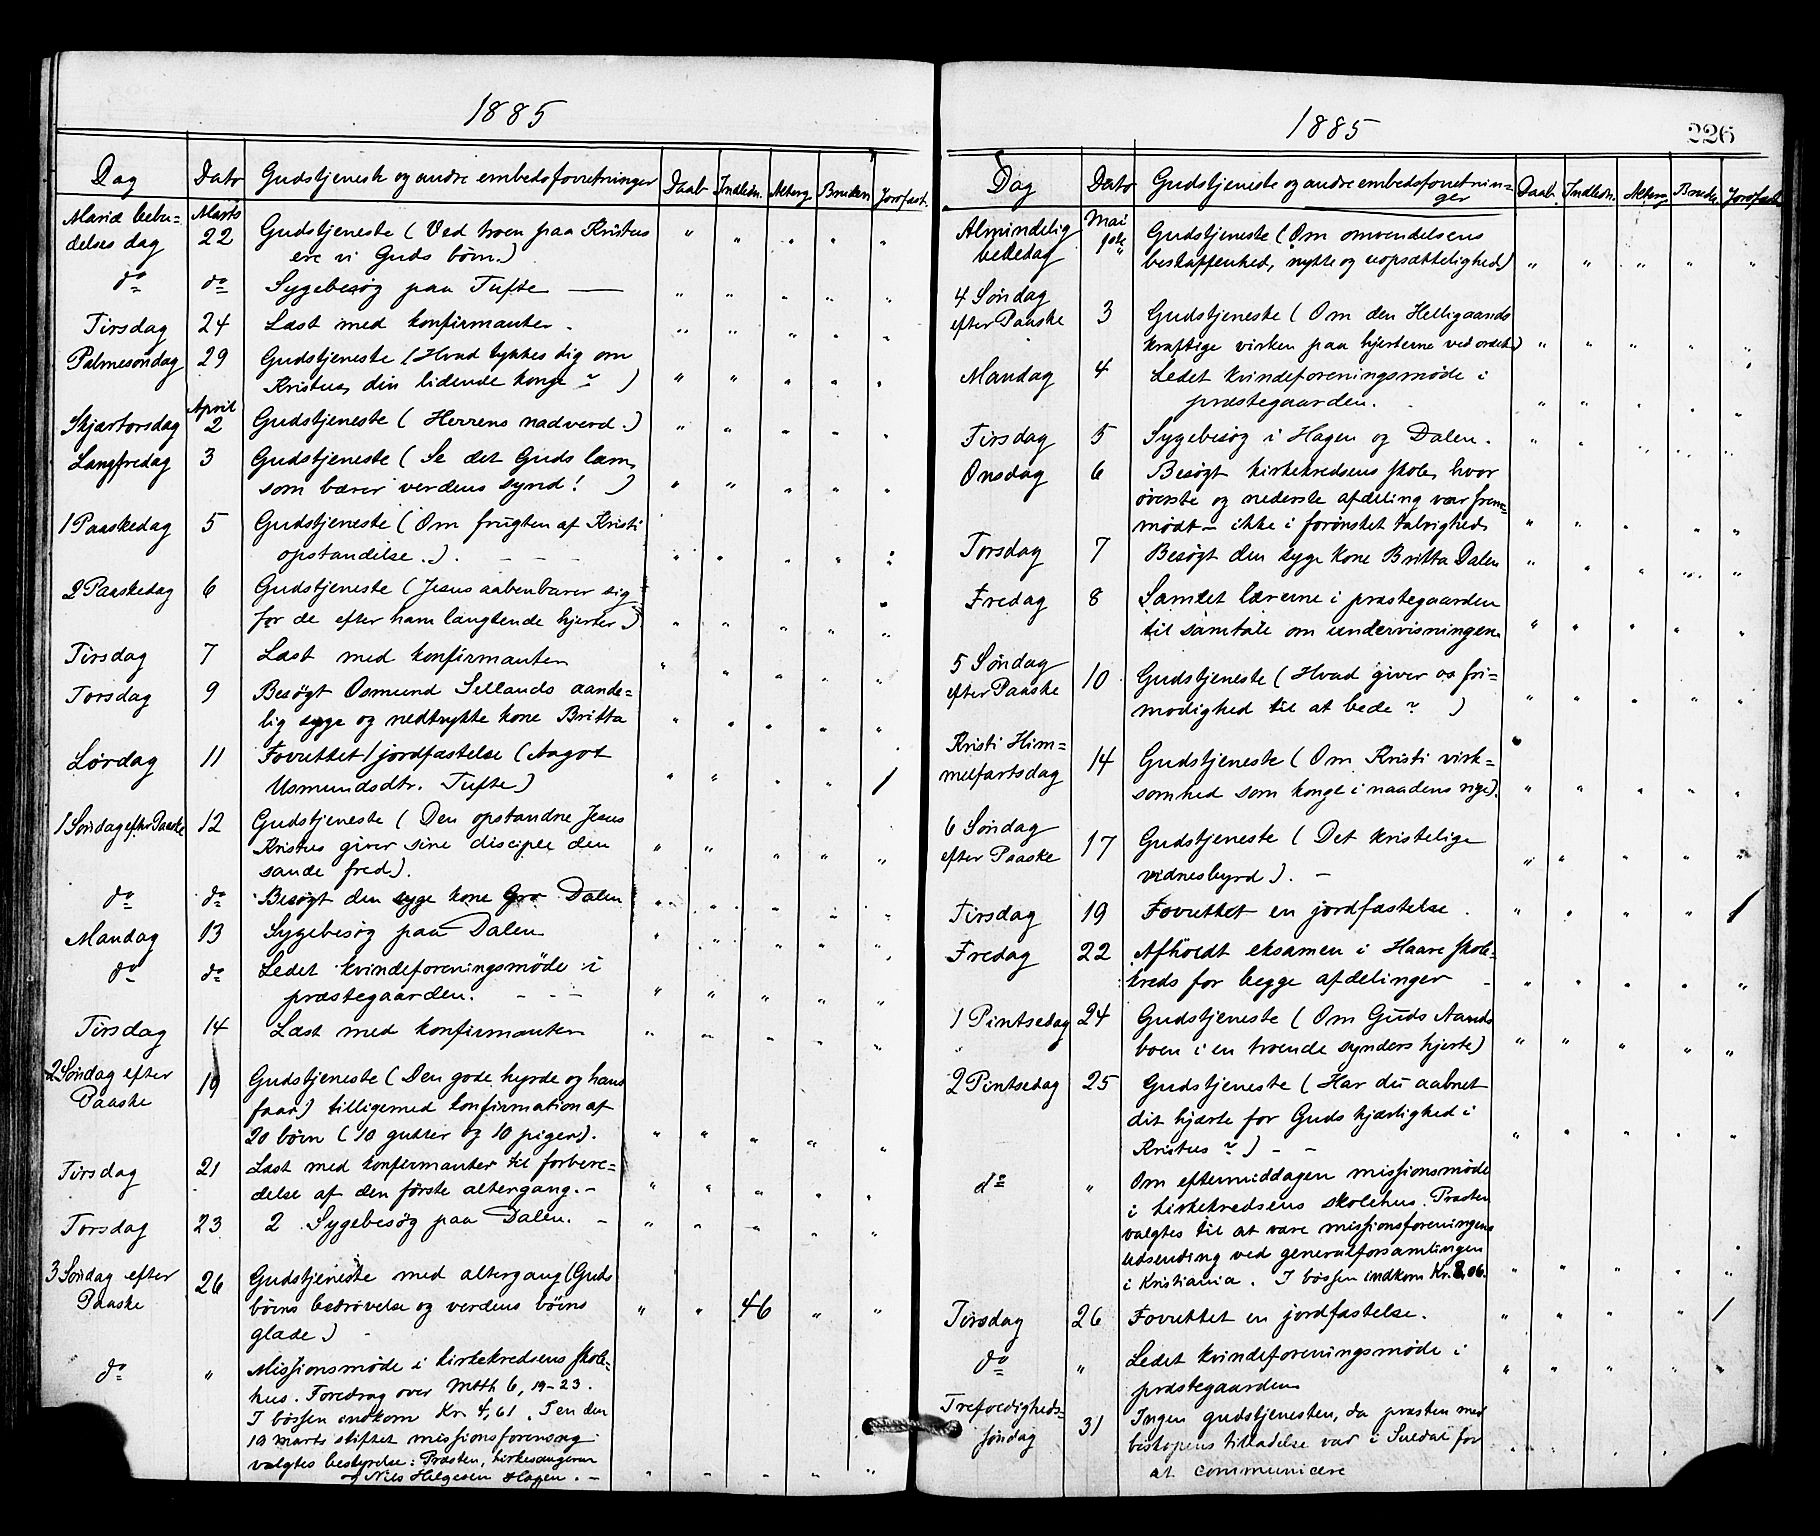 1885
Dag Dato Gudstjeneste og andre embedsforretninger Daab Indledn. Alterg. Bruden Jordfast.
Mariæ bebu- Marts
delses dag 22 Gudstjeneste (Ved troen paa Kristus
ere vi Guds børn.) " " " " "
do do Sygebesøg paa Tufte — " " " " "
Tirsdag 24 Læst med konfirmanter. " " " " "
Palmesøndag 29 Gudstjeneste (Hvad tykkes dig om
Kristus, din lidende konge?) " " " " "
April
Skjærtorsdag 2 Gudstjeneste (Herrens nadverd.) " " " " "
Langfredag 3 Gudstjeneste (Se det Guds lam,
som bærer verdens synd!) " " " " "
1 Paaskedag 5 Gudstjeneste (Om frugten af Kristi
opstandelse..). - - - " " " " "
2 Paaskedag 6 Gudstjeneste (Jesus aabenbarer sig
for de efter ham længtende hjerter.) " " " " "
Tirsdag 7 Læst med konfirmanter " " " " "
Torsdag 9 Besøgt Osmund Sellands aande-
lig syge og nedtrykte kone Britta " " " " "
Lørdag 11 Forrettet jordfæstelse (Aagot
Osmundsdtr. Tufte) " " " " 1
1 Søndag efter Paaske 12 Gudstjeneste (Den opstandne Jesus
Kristus giver sine disciple den
sande fred). " " " " "
do do Besøgt den syge kone Gro Dalen " " " " "
Mandag 13 Sygebesøg paa Dalen " " " " "
do do Ledet kvindeforeningsmøde i
præstegaarden. - - - " " " " "
Tirsdag 14 Læst med konfirmanter " " " " "
2 Søndag efter
Paaske 19 Gudstjeneste (Den gode hyrde og hans
faar) tilligemed konfirmation af
20 børn (10 gutter og 10 piger). " " " " "
Tirsdag 21 Læst med konfirmanter til forbere-
delse af den første altergang. - " " " " "
Torsdag 23 2 Sygebesøg paa Dalen. - " " " " "
3 Søndag efter
Paaske 26 Gudstjeneste med altergang (Guds
børns bedrøvelse og verdens børns " " 46 " "
glæde.) -
do " Missionsmøde i kirkekredsens skole-
hus. Foredrag over Mtth 6, 19-23.
I bøssen indkom Kr. 4,61. Den den
19 marts stiftet missionsforening
valgtes bestyrelse: Præsten, kirkesangeren
og Nils Helgesen Hagen. - " " " " "
1885 226
Dag Dato Gudstjeneste og andre embedsforretnin-
ger Daab. Indledn. Alterg. Brude. Jordfast.
Almindelig Mai
bededag 1ste Gudstjeneste (Om omvendelsens
beskaffenhed, nytte og uopsættelighed) " " " " "
4 Søndag
efter Paaske 3 Gudstjeneste (Om den Helligaands
kraftige virken paa hjerterne ved ordet.) " " " " "
Mandag 4 Ledet kvindeforeningsmøde i
præstegaarden. " " " " "
Tirsdag 5 Sygebesøg i Hagen og Dalen. " " " " "
Onsdag 6 Besøgt kirkekredsens skole, hvor
øverste og nederste afdeling var frem-
mødt - ikke i forønsket talrighed. " " " " "
Torsdag 7 Besøgt den syge kone Britta Dalen " " " " "
Fredag 8 Samlet lærerne i præstegaarden
til samtale om undervisningen. " " " " "
5 Søndag
efter Paaske 10 Gudstjeneste (Hvad giver os fri-
modighed til at bede?) " " " " "
Kristi Him-
melfartsdag 14 Gudstjeneste (Om Kristi virk-
somhed som konge i naadens rige). " " " " "
6 Søndag
efter Paaske 17 Gudstjeneste (Det kristelige
vidnesbyrd). - " " " " "
Tirsdag 19 Forrettet en jordfæstelse. " " " " 1
Fredag 22 Afholdt eksamen i Haare skole-
kreds for begge afdelinger - " " " " "
1 Pintsedag 24 Gudstjeneste (Om Guds Aands
boen i en troende synders hjerte) " " " " "
2 Pintsedag 25 Gudstjeneste (Har du aabnet
dit hjerte for Guds kjærlighed i
Kristus?) - - " " " " "
do " Om eftermiddagen missionsmøde
i kirkekredsens skolehus. Præsten
valgtes til at være missionsforeningens
udsending ved generalforsamlingen
i Kristiania. I bøssen indkom Kr. 8,06. " " " " "
Tirsdag 26 Forrettet en jordfæstelse. " " " " 1
do " Ledet kvindeforeningsmøde i
præstegaarden " " " " "
Trefoldigheds-
søndag 31 Ingen gudstjeneste, da præsten med
biskopens tilladelse var i Suldal for
at communicere " " " "